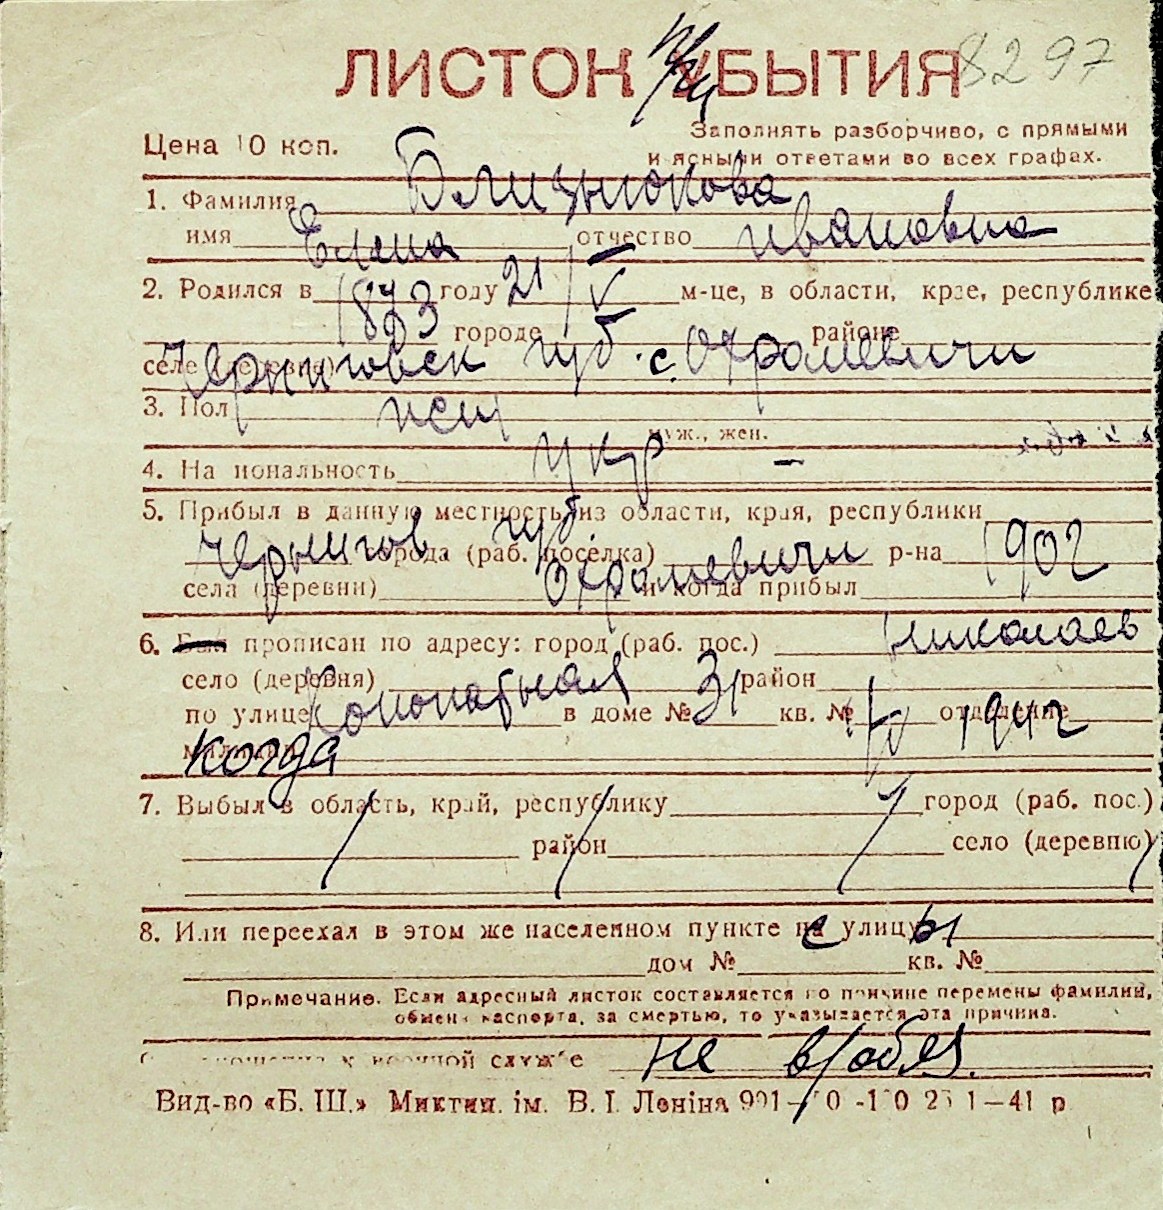 ЛИСТОК УБЫТИЯ 8297
Цена 10 коп.
Заполнять разборчиво, с прямыми
и ясными ответами во всех графах.
1. Фамилия Близнюкова
имя Елена отчество Ивановна
2. Родился в 1873 году 21/V м-це, в области, крае, республике
городе районе
селе (деревне) Черниговск губ. с. Охрамевичи
3. Пол жен
муж., жен.
4. Национальность укр –
5. Прибыл в данную местность из области, края, республики
Чернигов губ города (раб. поселка) р-на 1902
села (деревни) Охрамевичи и когда прибыл
6. Был прописан по адресу: город (раб. пос.) Николаев
село (деревня) район
по улице Конопатная в доме № 31 кв. № отделение 1942
милиции когда
7. Выбыл в область, край, республику город (раб. пос.)
район село (деревню)
8. Или переехал в этом же населенном пункте с улицы
дом № кв. №
Примечание. Если адресный листок составляется по причине перемены фамилии,
обмена паспорта, за смертью, то указывается эта причина.
к военной службе не в/обяз.
Вид-во «Б. Ш.» Миктип. ім. В. І. Леніна 1—41 р